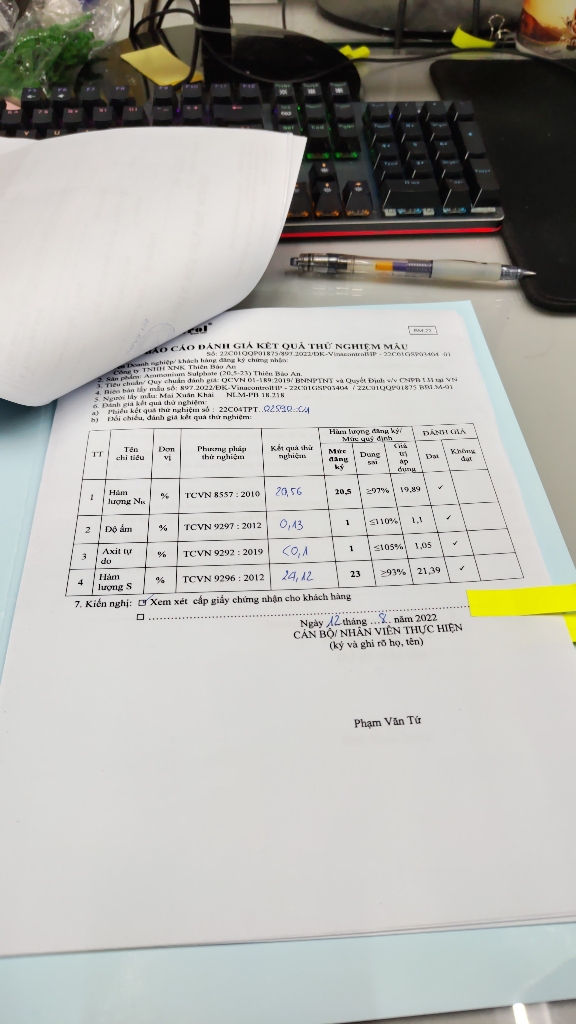 BM.22
BÁO CÁO ĐÁNH GIÁ KẾT QUẢ THỬ NGHIỆM MẪU
Số: 22C01QQP01875/897.2022/ĐK-VinacontrolHP - 22C01GSP03404 -01
Doanh nghiệp/ khách hàng đăng ký chứng nhận:
Công ty TNHH XNK Thiên Bảo An
2. Sản phẩm: Ammonium Sulphate (20,5-23) Thiên Bảo An.
3. Tiêu chuẩn/ Quy chuẩn đánh giá: QCVN 01-189:2019/ BNNPTNT và Quyết Định v/v CNPB LH tại VN
4. Biên bản lấy mẫu số: 897.2022/ĐK-VinacontrolHP - 22C01GSP03404 / 22C01QQP01875
5. Người lấy mẫu: Mai Xuân Khải NLM-PB 18.218
6. Đánh giá kết quả thử nghiệm:
a) Phiếu kết quả thử nghiệm số : 22C04TPT.
b) Đối chiếu, đánh giá kết quả thử nghiệm:
TT Tên chỉ tiêu Đơn vị Phương pháp thử nghiệm Kết quả thử nghiệm Hàm lượng đăng ký/ Mức quy định ĐÁNH GIÁ
Mức đăng ký Dung sai Giá trị áp dụng Đạt Không đạt
1 Hàm lượng Nts % TCVN 8557 : 2010 20,56 20,5 ≥97% 19,89 ✓
2 Độ ẩm % TCVN 9297 : 2012 0,13 1 ≤110% 1,1 ✓
3 Axit tự do % TCVN 9292 : 2019 <0,1 1 ≤105% 1,05 ✓
4 Hàm lượng S % TCVN 9296 : 2012 24,12 23 ≥93% 21,39 ✓
7. Kiến nghị: ☑ Xem xét cấp giấy chứng nhận cho khách hàng
☐
Ngày 12 tháng 8 năm 2022
CÁN BỘ/ NHÂN VIÊN THỰC HIỆN
(ký và ghi rõ họ, tên)
Phạm Văn Tứ